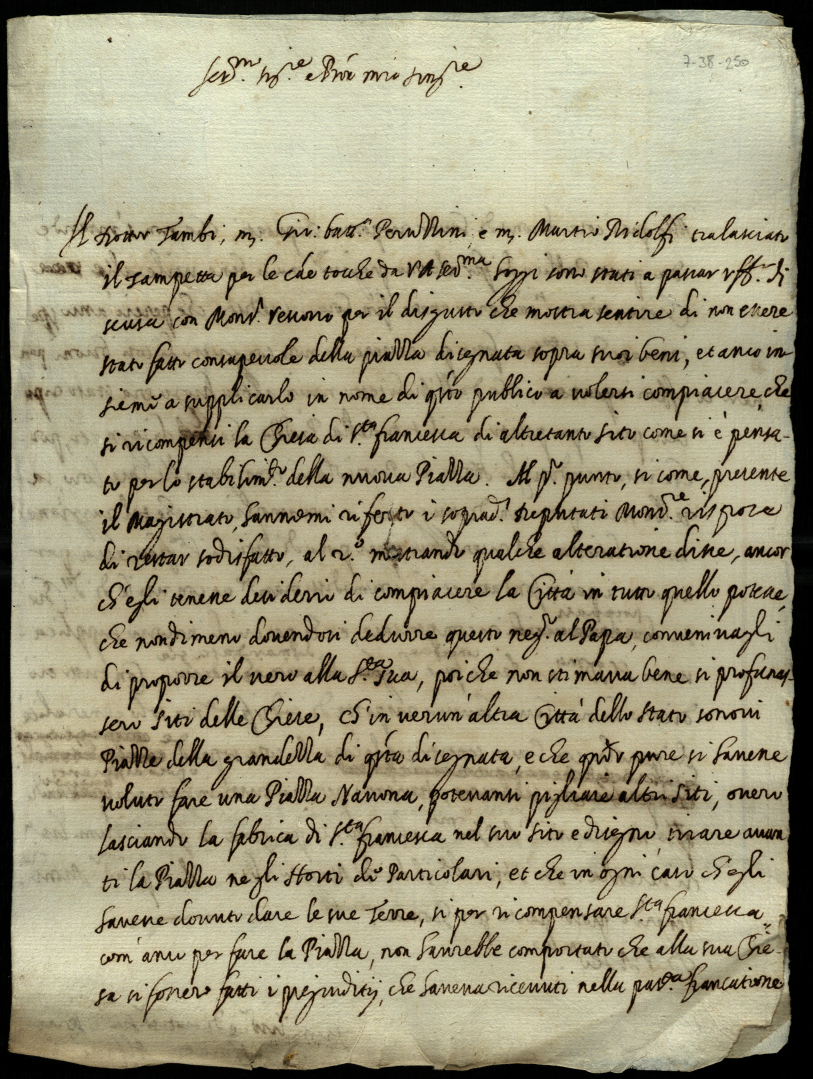 7-38-250
Ser.mo Sig.re e Pron mio Sing.re
Il Dottor Zambi, m. Gio: batt.a Peruzzini, e m. Martio Ridolfi tralasciato
il Zampetta per le cãe tocche da V A Ser.ma hoggi sono stati a passar uff.o di
scusa con Mons.r Vescovo per il disgusto che mostra sentire di non essere
stato fatto consapevole della piazza disegnata sopra suoi beni, et anco in-
siemẽ a supplicarlo in nome di q̃sto publico a volersi compiacere, che
si ricompensi la Chiesa di S.ta francesca di altretanto sito come si è pensa-
to per lo stabilim.to della nuova Piazza. Al p.o punto, si come, presente
il Magistrato, hannomi riferito i soprad.i Deputati Mons.re rispose
di restar sodisfatto, al 2.o mostrando qualche alteratione disse, ancor
ch'egli tenesse desiderio di compiacere la Città in tutto quello potesse,
che nondimeno dovendosi dedurre questo neg.o al Papa, convenivagli
di proporre il vero alla S.tà Sua, poiche non stimava bene si profanas-
sero siti delle Chiese, ch'in verun'altra Città dello stato sonovi
Piazze della grandezza di q̃sta disegnata, e che qñdo pure si havesse
voluto fare una Piazza Navona, potevansi pigliare altri siti, overo
lasciando la fabrica di S.ta francesca nel suo sito e disegno, tirare avan
ti la Piazza negli Horti dẽ Particolari, et che in ogni caso ch'egli
havesse dovuto dare le sue Terre, si per ricompensare S.ta francesca
com'anco per fare la Piazza, non haurebbe comportato che alla sua Chie-
sa si fossero fatti i prejuditij, che haveva ricevuti nella pass.a francatione